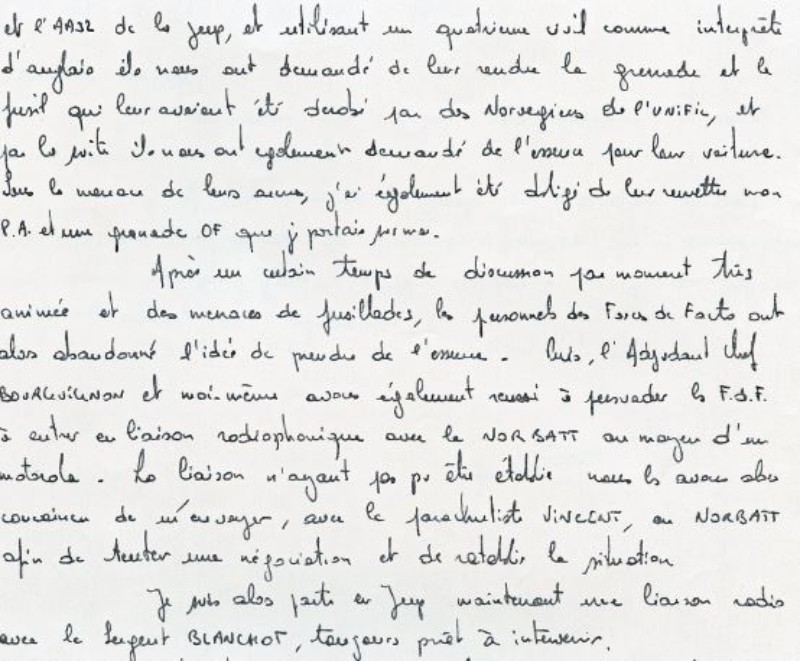 et l'AA52 de la Jeep, et utilisant un quatrième civil comme interprète
d'anglais ils nous ont demandé de leur rendre la grenade et le
fusil qui leur avaient été dérobé par des Norvegiens de l'UNIFIL, et
par la suite ils nous ont egalement demandé de l'essence pour leur voiture.
Sous la menace de leurs armes, j'ai également été obligé de leur remettre mon
P.A. et une grenade OF que j portais sur moi.
Après un certain temps de discussion par moment très
animée et des menaces de fusillades, les personnels des Forces de Facto ont
alors abandonné l'idée de prendre de l'essence. Puis, l'Adjudant Chef
BOURGUIGNON et moi-même avons également reussi à persuader les F.d.F.
à entrer en liaison radiophonique avec le NORBATT au moyen d'un
motorola. La liaison n'ayant pas pu être établie nous les avons alors
convaincu de m'envoyer, avec le parachutiste VINCENT, au NORBATT
afin de tenter une négociation et de retablir la situation
Je suis alors parti en Jeep maintenant une liaison radio
avec le Sergent BLANCHOT, toujours prêt à intervenir.